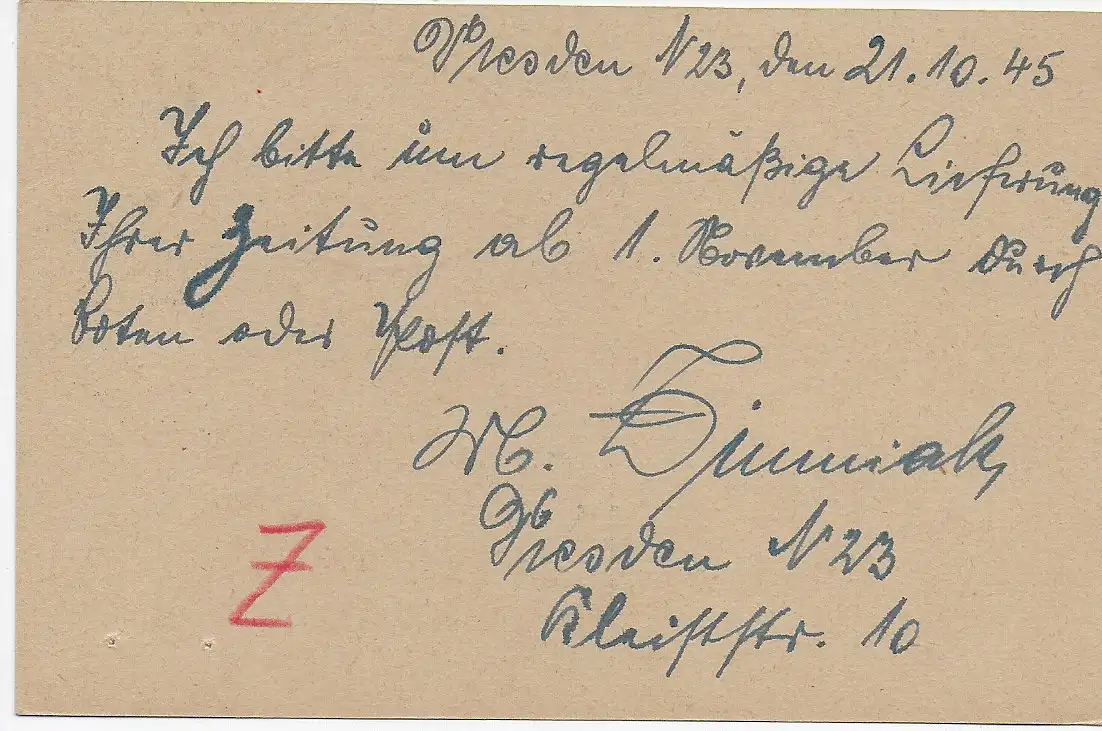 Dresden N23, den 21.10.45
Ich bitte um regelmäßige Lieferung
Ihrer Zeitung ab 1. November durch
Boten oder Post.
M.
Dresden N 23
Kleiststr. 10
Z